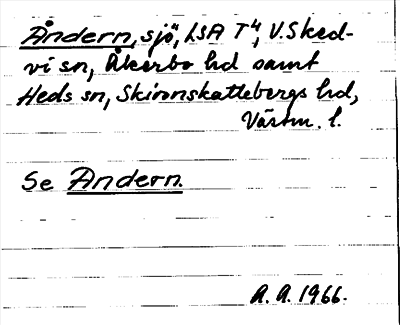 Åndern, sjö, LSA T⁴, V. Sked-
vi sn, Åkerbo hd samt
Heds sn, Skinnskattebergs hd,
Västm. l.
Se Andern.
A. A. 1966.